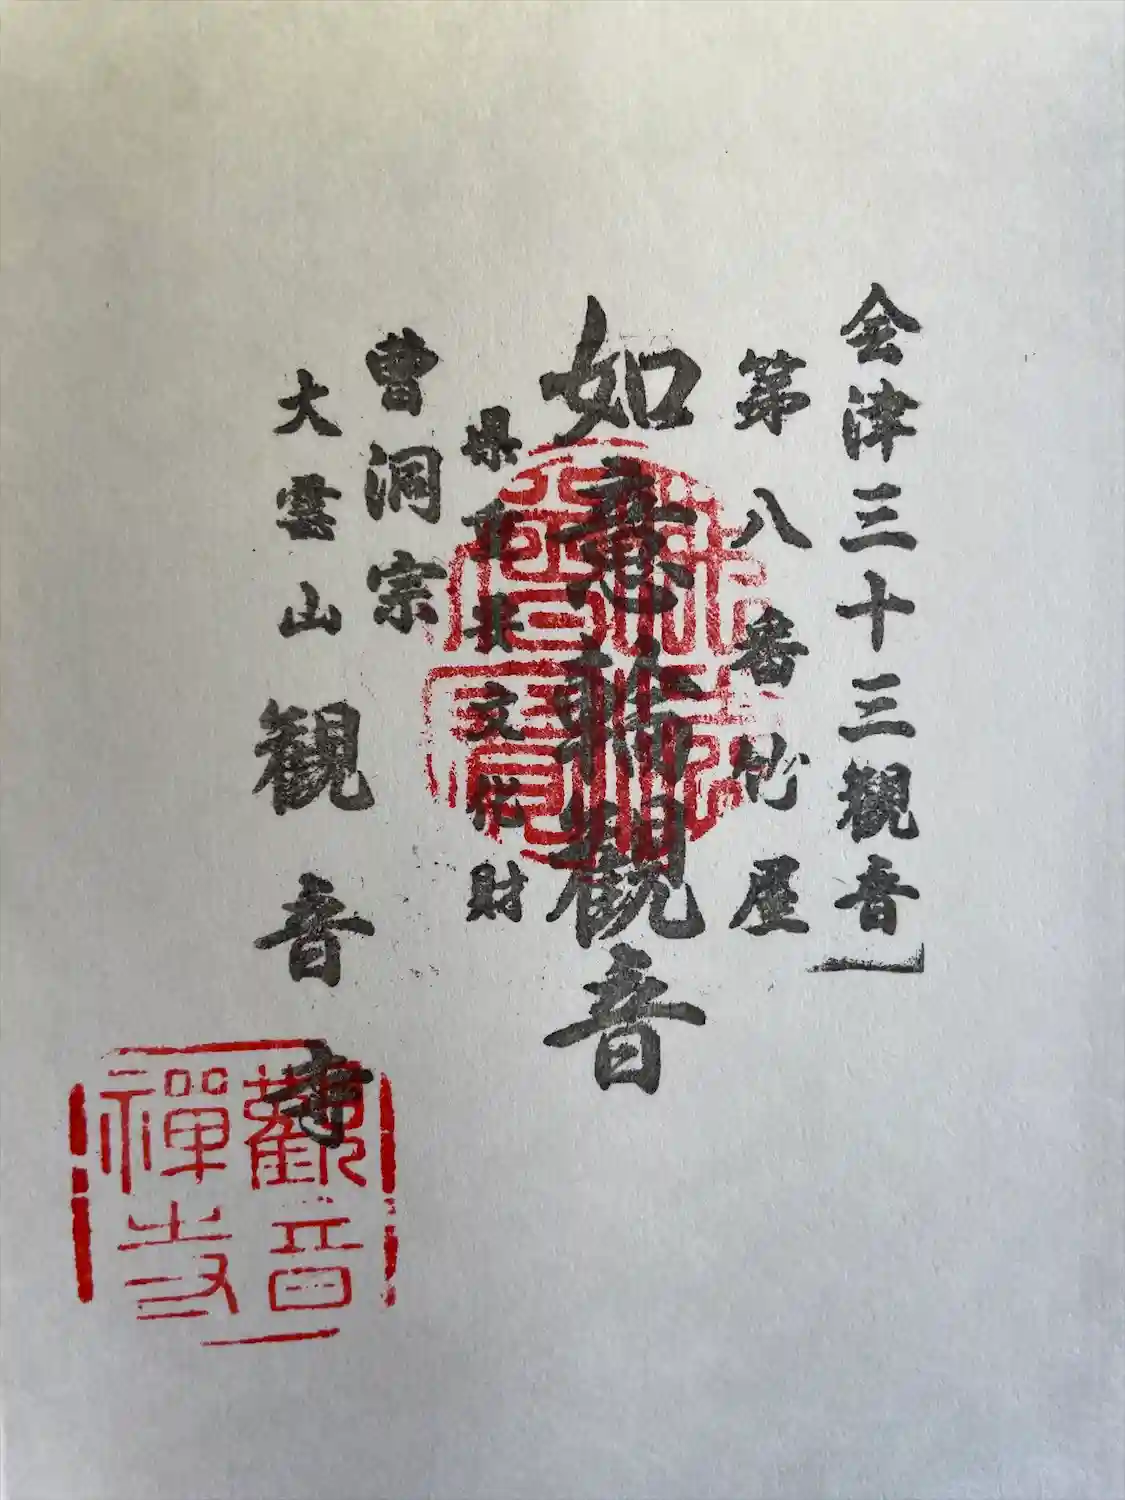 会津三十三観音
第八番 竹屋
如意輪観音
県重文化財
曹洞宗
大雲山 観音寺
觀音
禪寺